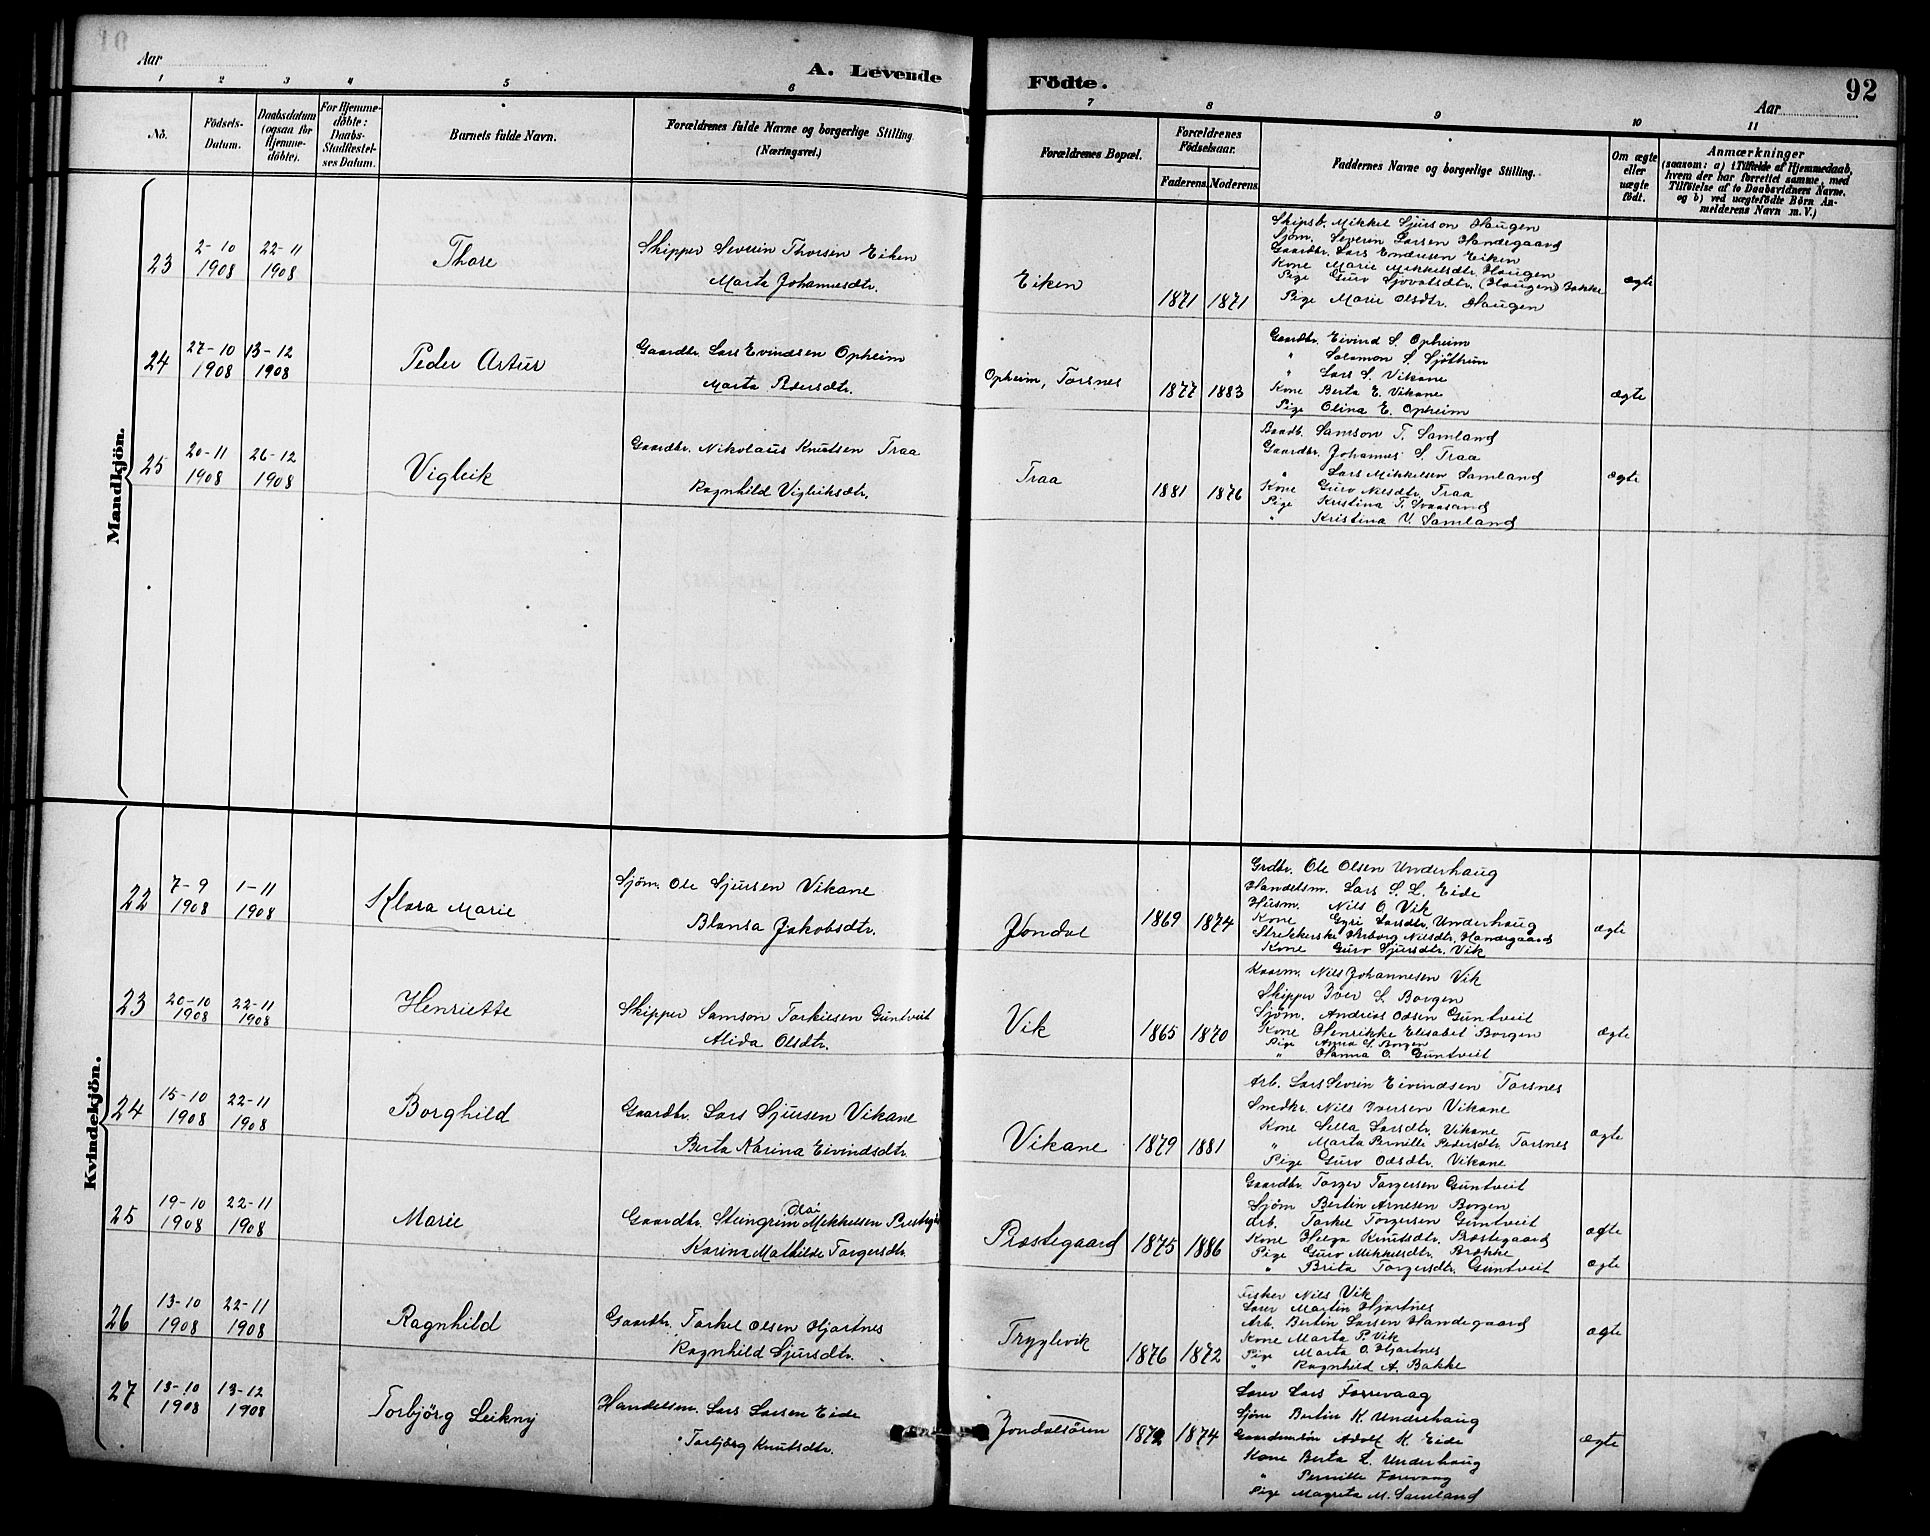 Aar
A. Levende Födte.
Aar
92
1 2 3 4 5 6 7 8 9 10 11
No.
Födsels-Datum.
Daabsdatum (ogsaa for Hjemmedöbte).
For Hjemmedöbte: Daabs-Stadfæstelses Datum.
Barnets fulde Navn.
Forældrenes fulde Navne og borgerlige Stilling. (Næringsvei.)
Forældrenes Bopæl.
Forældrenes Födselsaar.
Faderens. Moderens.
Faddernes Navne og borgerlige Stilling.
Om ægte eller uægte födt.
Anmærkninger
(saasom: a) i Tilfælde af Hjemmedaab, hvem der har forrettet samme, med Tilföielse af to Daabsvidners Navne. og b) ved uægtefödte Börn Anmelderens Navn m. V.)
Mandkjön.
23 2-10 1908 22-11 1908 Thore
Skipper Severin Thorsen Eiken
Marta Johannesdtr.
Eiken 1871 1871
Skipsb. Mikkel Sjurson Haugen
Sjöm. Severin Larsen Handegaard
Gaardbr. Lars Endresen Eiken
Kone Marie Mikkelsdtr. Haugen
Pige Guro Sjovatsdtr. (Haugen) Bakke
Pige Marie Olsdtr. Haugen
ægte
24 27-10 1908 13-12 1908 Peder Artur
Gaardbr. Lars Eivindsen Opheim
Marta Pedersdtr.
Opheim, Torsnes 1877 1883
Gaardbr. Eivind S. Opheim
" Salamon S. Sjöthun
" Lars S. Vikane
Kone Berta E. Vikane
Pige Olina E. Opheim
ægte
25 20-11 1908 26-12 1908 Vigleik
Gaardbr. Nikolaus Knutsen Traa
Ragnhild Vigleiksdtr.
Traa 1881 1876
Baadb. Samson T. Samland
Gaardbr. Johannes S. Traa
" Lars Mikkelsen Samland
Kone Guro Nilsdtr. Traa
Pige Kristina T. Svaasand
" Kristina V. Samland
ægte
Kvindekjön.
22 7-9 1908 1-11 1908 Klara Marie
Sjöm. Ole Sjursen Vikane
Blansa Jakobsdtr.
Jondal 1869 1874
Grdbr. Ole Olsen Underhaug
Handelsm. Lars S. L. Eide
Husm. Nils O. Vik
Kone Gyri Larsdtr. Underhaug
Strikkerske Herborg Nilsdtr. Handegaard
Kone Guro Sjursdtr. Vik
ægte
23 20-10 1908 22-11 1908 Henriette
Skipper Samson Torkilsen Guntveit
Alida Olsdtr.
Vik 1865 1870
Kaarm. Nils Johannesen Vik
Skipper Iver S. Borgen
Sjöm. Andrias Odsen Guntveit
Kone Henrikke Elisabet Borgen
Pige Anna S. Borgen
" Hanna O. Guntveit
ægte
24 15-10 1908 22-11 1908 Borghild
Gaardbr. Lars Sjursen Vikane
Berta Karina Eivindsdtr.
Vikane 1879 1881
Arb. Lars Sevrin Eivindsen Torsnes
Smedkr. Nils Iversen Vikane
Kone Sella Larsdtr. Vikane
" Marta Pernille Pedersdtr. Torsnes
Pige Guro Odsdtr. Vikane
ægte
25 19-10 1908 22-11 1908 Marie
Gaardbr. Steingrim Olai Mikkelsen Prestegd
Karina Mathilde Torgersdtr.
Præstegaard 1875 1886
Gaardbr. Torger Torgersen Guntveit
Sjöm Bertin Arnesen Borgen
Arb. Torkel Torgersen Guntveit
Kone Helga Knutsdtr. Præstegaard
Pige Guro Mikkelsdtr. Brække
" Brita Torgersdtr. Guntveit
ægte
ægte
26 13-10 1908 22-11 1908 Ragnhild
Gaardbr. Torkel Olsen Hjartnes
Ragnhild Sjursdtr.
Tryglevik 1876 1872
Fisker Nils Vik
Lærer Martin Hjartnes
Arb. Bertin Larsen Handegaard
Kone Marta P. Vik
Pige Marta O. Hjartnes
" Ragnhild A. Bakke
ægte
27 13-10 1908 13-12 1908 Torbjörg Leikny
Handelsm. Lars Larsen Eide
Torbjörg Knutsdtr.
Jondalsören 1872 1874
Lærer Lars Forrevaag
Sjöm Bertin K. Underhaug
Adolf K. Eide
Kone Berta L. Underhaug
" Pernille Forevaag
Pige Magreta M. Samland
ægte